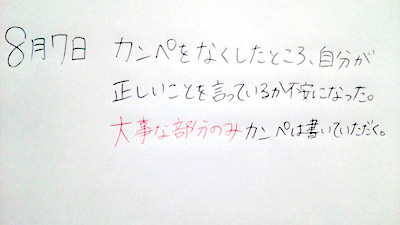 8月7日 カンペをなくしたところ、自分が
正しいことを言っているか不安になった。
大事な部分のみカンペは書いていただく。